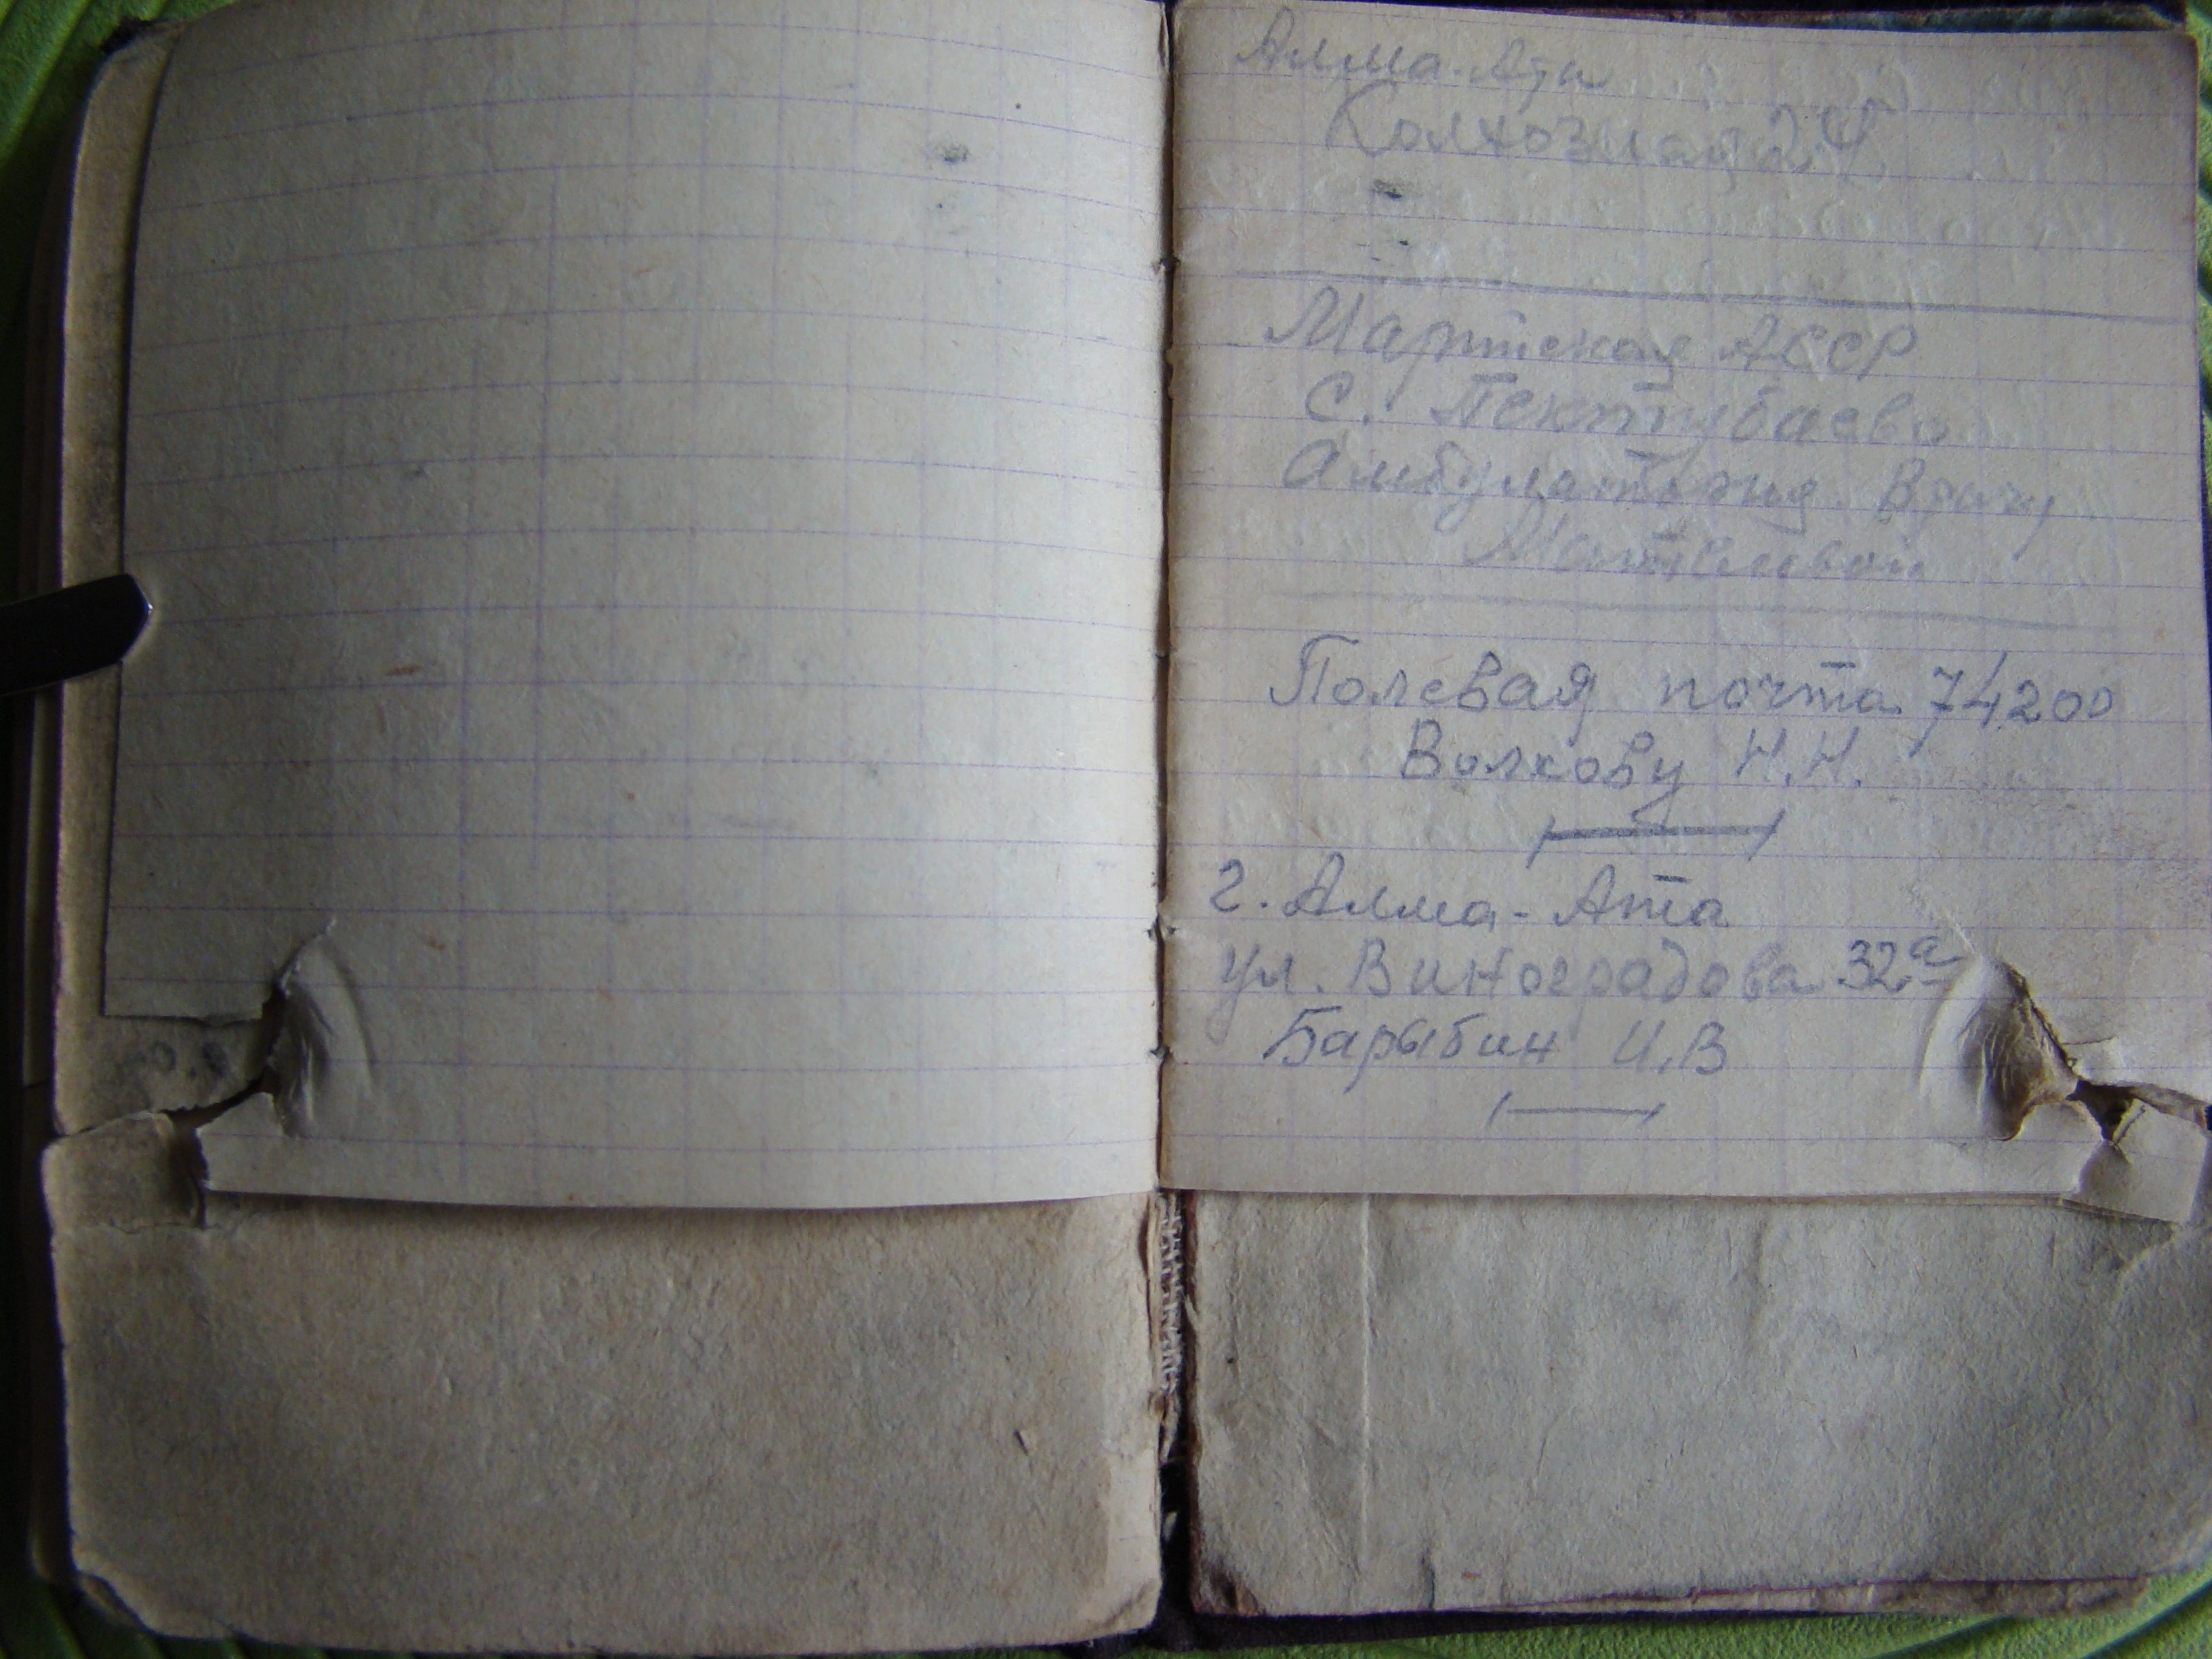 Алма-Ата
Колхозная 24
Марийская АССР
с. Пектубаево
Амбулатория. Врачу
Матвеевой
Полевая почта 74200
Волкову Н.Н.
г. Алма-Ата
ул. Виноградова 32а
Барыбин И.В